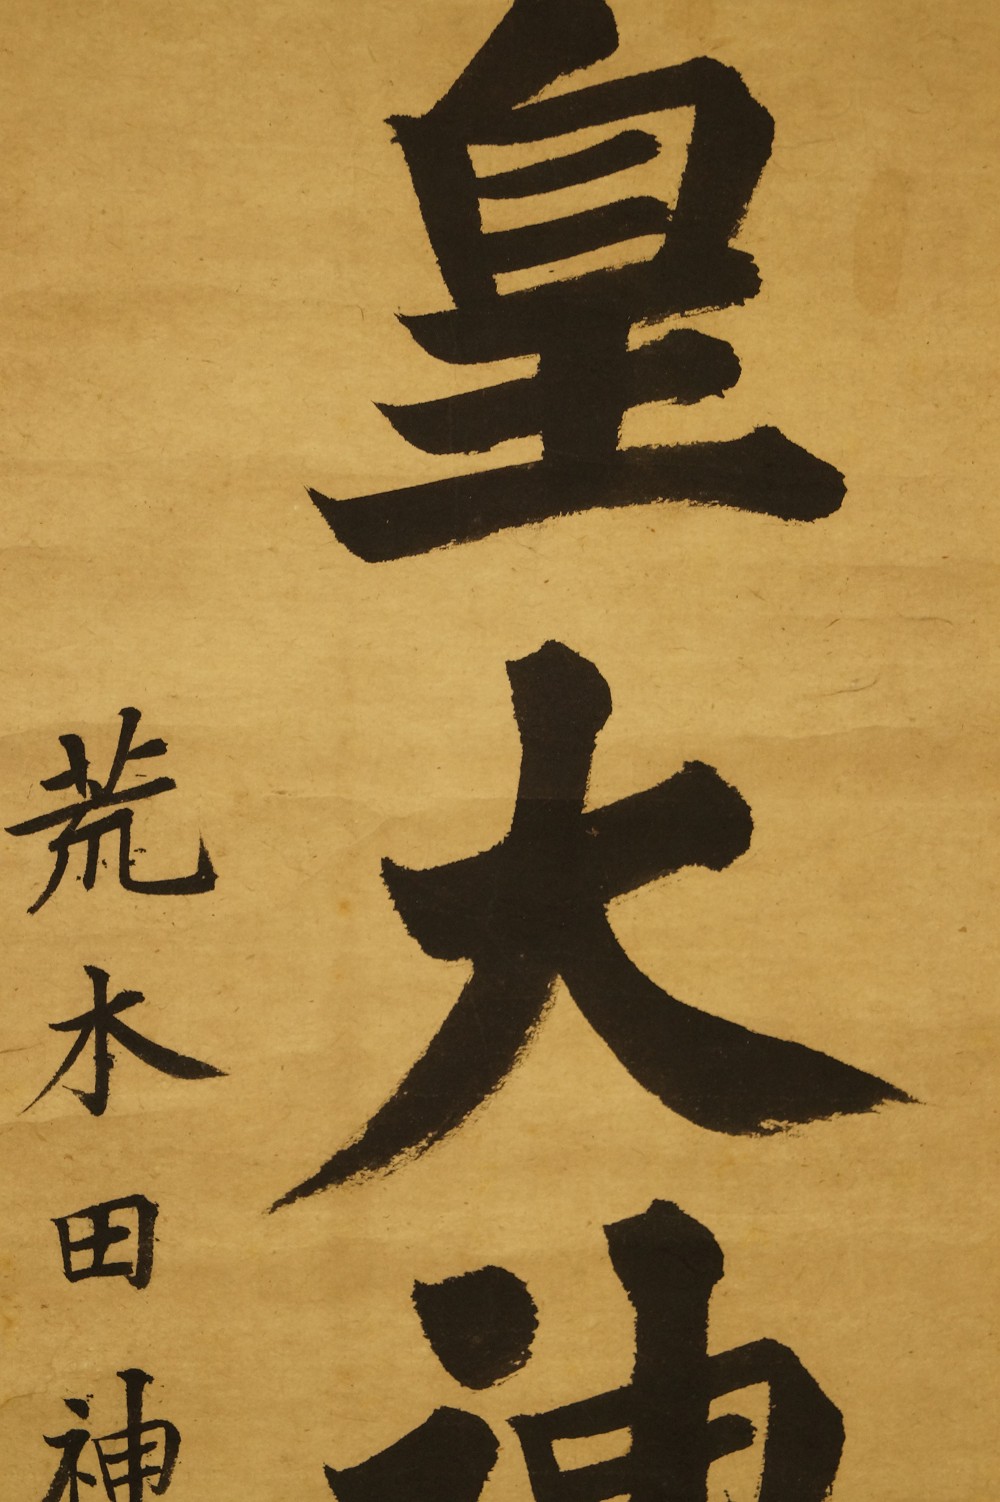 皇大神
荒木田神